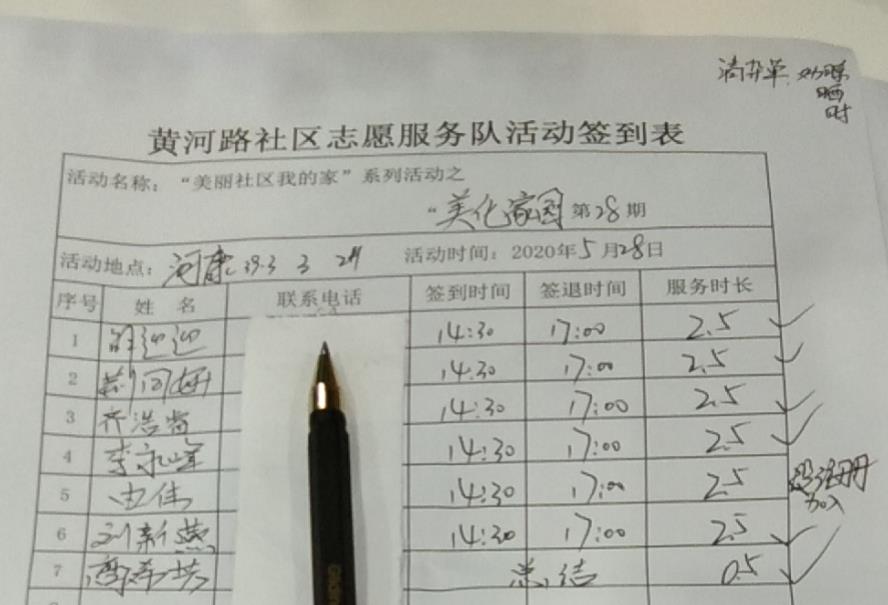 黄河路社区志愿服务队活动签到表
活动名称：“美丽社区我的家”系列活动之
“美化家园 第28期
活动地点：河康
活动时间：2020年5月28日
序号 姓 名 联系电话 签到时间 签退时间 服务时长
1 迎迎 14:30 17:00 2.5
2 14.30 17:00 2.5
3 齐浩 14:30 17:00 2.5
4 李永峰 14:30 17:00 2.5
5 由伟 14:30 17:00 2.5 注册
加入
6 刘新燕 14:30 17:00 2.5
7 总结 0.5